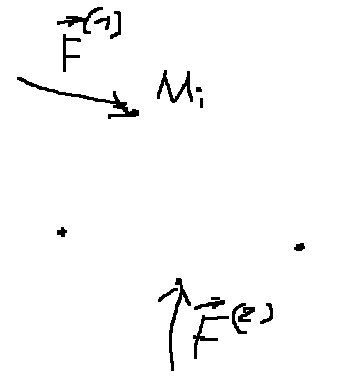 F⃗⁽¹⁾
Mᵢ
F⃗⁽²⁾